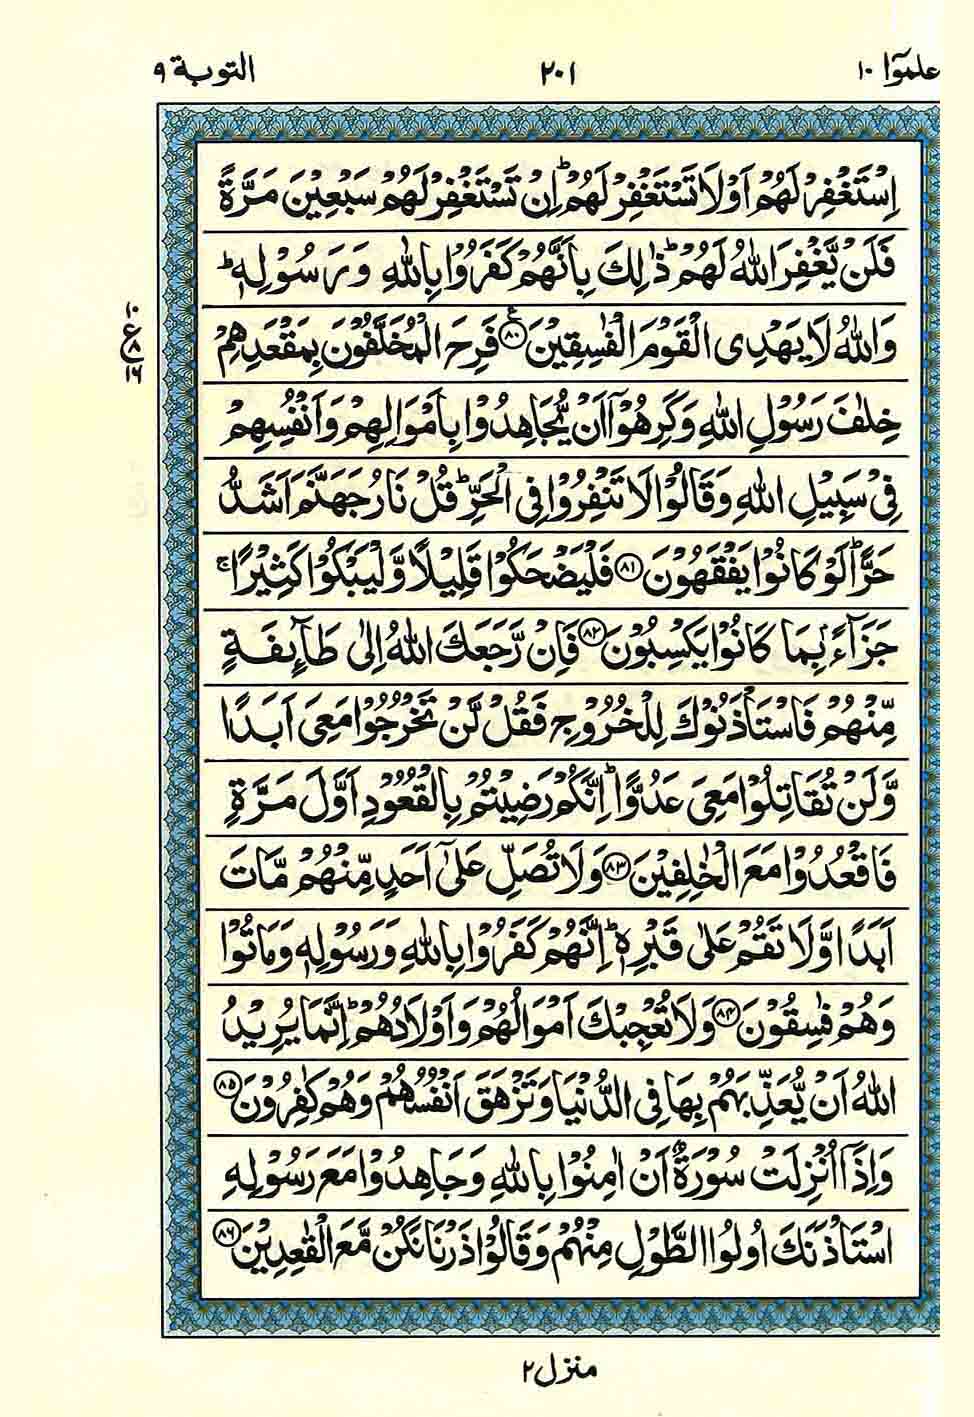 علموۤا ١٠
٢٠١
التوبة ٩
اِسْتَغْفِرْ لَهُمْ اَوْ لَا تَسْتَغْفِرْ لَهُمْ ؕ اِنْ تَسْتَغْفِرْ لَهُمْ سَبْعِيْنَ مَرَّةً
فَلَنْ يَّغْفِرَ اللّٰهُ لَهُمْ ؕ ذٰلِكَ بِاَنَّهُمْ كَفَرُوْا بِاللّٰهِ وَ رَسُوْلِهٖ ؕ
وَاللّٰهُ لَا يَهْدِى الْقَوْمَ الْفٰسِقِيْنَ ۧ ﴿٨٠﴾ فَرِحَ الْمُخَلَّفُوْنَ بِمَقْعَدِهِمْ
خِلٰفَ رَسُوْلِ اللّٰهِ وَكَرِهُوْۤا اَنْ يُّجَاهِدُوْا بِاَمْوَالِهِمْ وَاَنْفُسِهِمْ
فِىْ سَبِيْلِ اللّٰهِ وَقَالُوْا لَا تَنْفِرُوْا فِى الْحَرِّ ؕ قُلْ نَارُ جَهَنَّمَ اَشَدُّ
حَرًّا ؕ لَوْ كَانُوْا يَفْقَهُوْنَ ﴿٨١﴾ فَلْيَضْحَكُوْا قَلِيْلًا وَّلْيَبْكُوْا كَثِيْرًا ۚ
جَزَآءًۢ بِمَا كَانُوْا يَكْسِبُوْنَ ﴿٨٢﴾ فَاِنْ رَّجَعَكَ اللّٰهُ اِلٰى طَآٮِٕفَةٍ
مِّنْهُمْ فَاسْتَاْذَنُوْكَ لِلْخُرُوْجِ فَقُلْ لَّنْ تَخْرُجُوْا مَعِىَ اَبَدًا
وَّلَنْ تُقَاتِلُوْا مَعِىَ عَدُوًّا ؕ اِنَّكُمْ رَضِيْتُمْ بِالْقُعُوْدِ اَوَّلَ مَرَّةٍ
فَاقْعُدُوْا مَعَ الْخٰلِفِيْنَ ﴿٨٣﴾ وَلَا تُصَلِّ عَلٰٓى اَحَدٍ مِّنْهُمْ مَّاتَ
اَبَدًا وَّلَا تَقُمْ عَلٰى قَبْرِهٖ ؕ اِنَّهُمْ كَفَرُوْا بِاللّٰهِ وَرَسُوْلِهٖ وَمَاتُوْا
وَهُمْ فٰسِقُوْنَ ﴿٨٤﴾ وَلَا تُعْجِبْكَ اَمْوَالُهُمْ وَاَوْلَادُهُمْ ؕ اِنَّمَا يُرِيْدُ
اللّٰهُ اَنْ يُّعَذِّبَهُمْ بِهَا فِى الدُّنْيَا وَتَزْهَقَ اَنْفُسُهُمْ وَهُمْ كٰفِرُوْنَ ﴿٨٥﴾
وَاِذَاۤ اُنْزِلَتْ سُوْرَةٌ اَنْ اٰمِنُوْا بِاللّٰهِ وَجَاهِدُوْا مَعَ رَسُوْلِهِ
اسْتَاْذَنَكَ اُولُوا الطَّوْلِ مِنْهُمْ وَقَالُوْا ذَرْنَا نَكُنْ مَّعَ الْقٰعِدِيْنَ ﴿٨٦﴾
١٠
ع ٨
١٦
منزل ٢